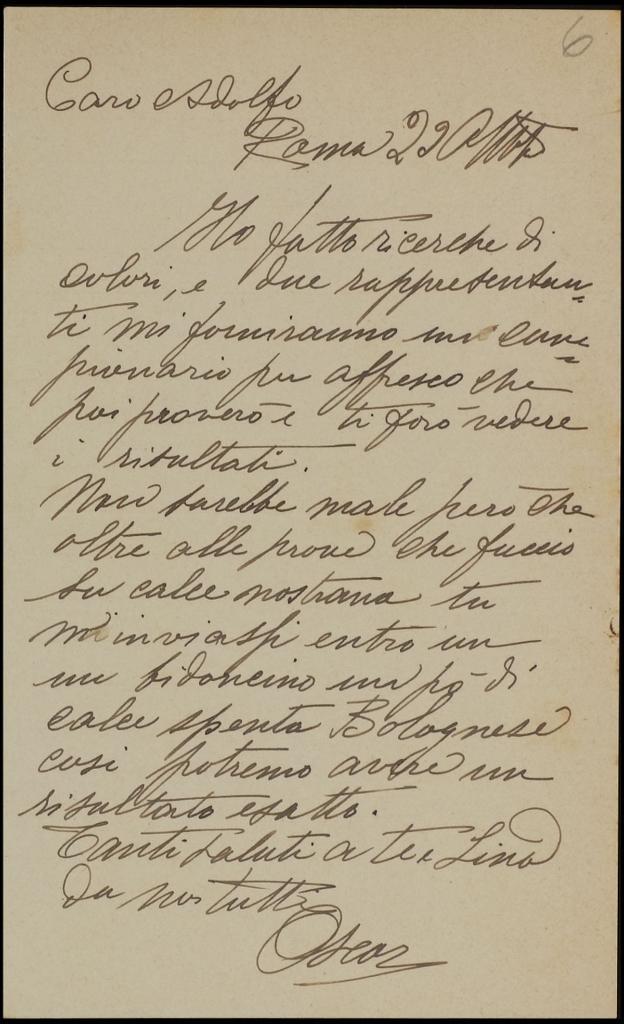 6
Caro Adolfo
Roma 22
Ho fatto ricerche di
colori, e due rappresentan=
ti mi forniranno un cam=
pionario per affresco che
poi proverò e ti farò vedere
i risultati.
Non sarebbe male però che
oltre alle prove che faccio
su calce nostrana tu
m'inviassi entro un
un bidoncino un pò di
calce spenta Bolognese
cosi potremo avere un
risultato esatto.
Tanti saluti a te e Lina
da noi tutti
Oscar